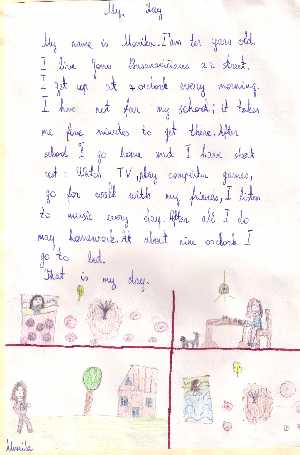 My Day
My name is Monika. I'am ten years old.
I live Jono Basanavičiaus 22 street.
I get up at 7 o'clock every morning.
I have not far my school; it takes
me five minutes to get there. After
school I go home and I have short
rest: Watch TV, play computer games,
go for walk with my friends, I listen
to music every day. After all I do
may homework. At about nine o'clock I
go to bed.
That is my day.
Monika